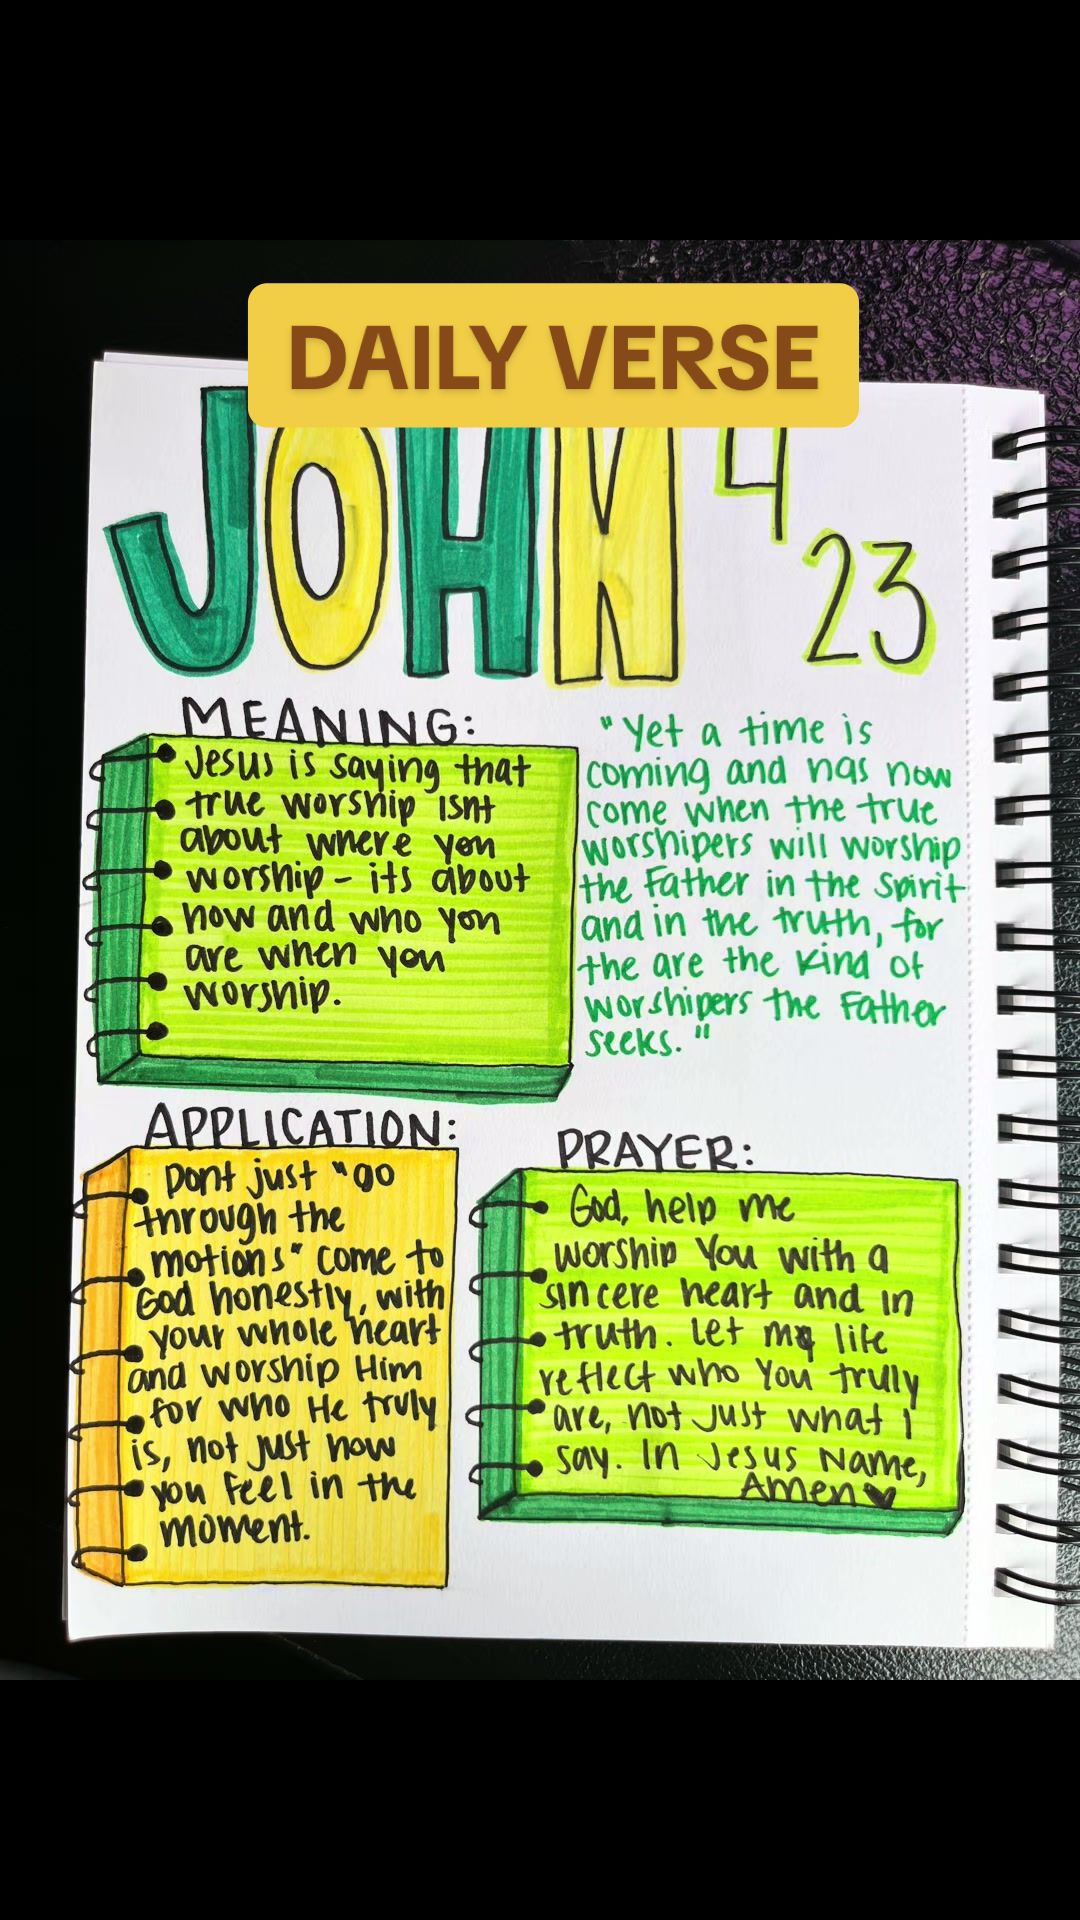 DAILY VERSE
JOHN 4
23
MEANING:
Jesus is saying that
true worship isnt
about where you
worship - its about
how and who you
are when you
worship.
"Yet a time is
coming and has now
come when the true
worshipers will worship
the Father in the Spirit
and in the truth, for
the are the kind of
worshipers the Father
seeks."
APPLICATION:
Dont just "go
through the
motions" come to
God honestly, with
your whole heart
and worship Him
for who He truly
is, not just how
you feel in the
moment.
PRAYER:
God, help me
worship You with a
sincere heart and in
truth. Let my life
reflect who You truly
are, not just what I
say. In Jesus Name,
Amen